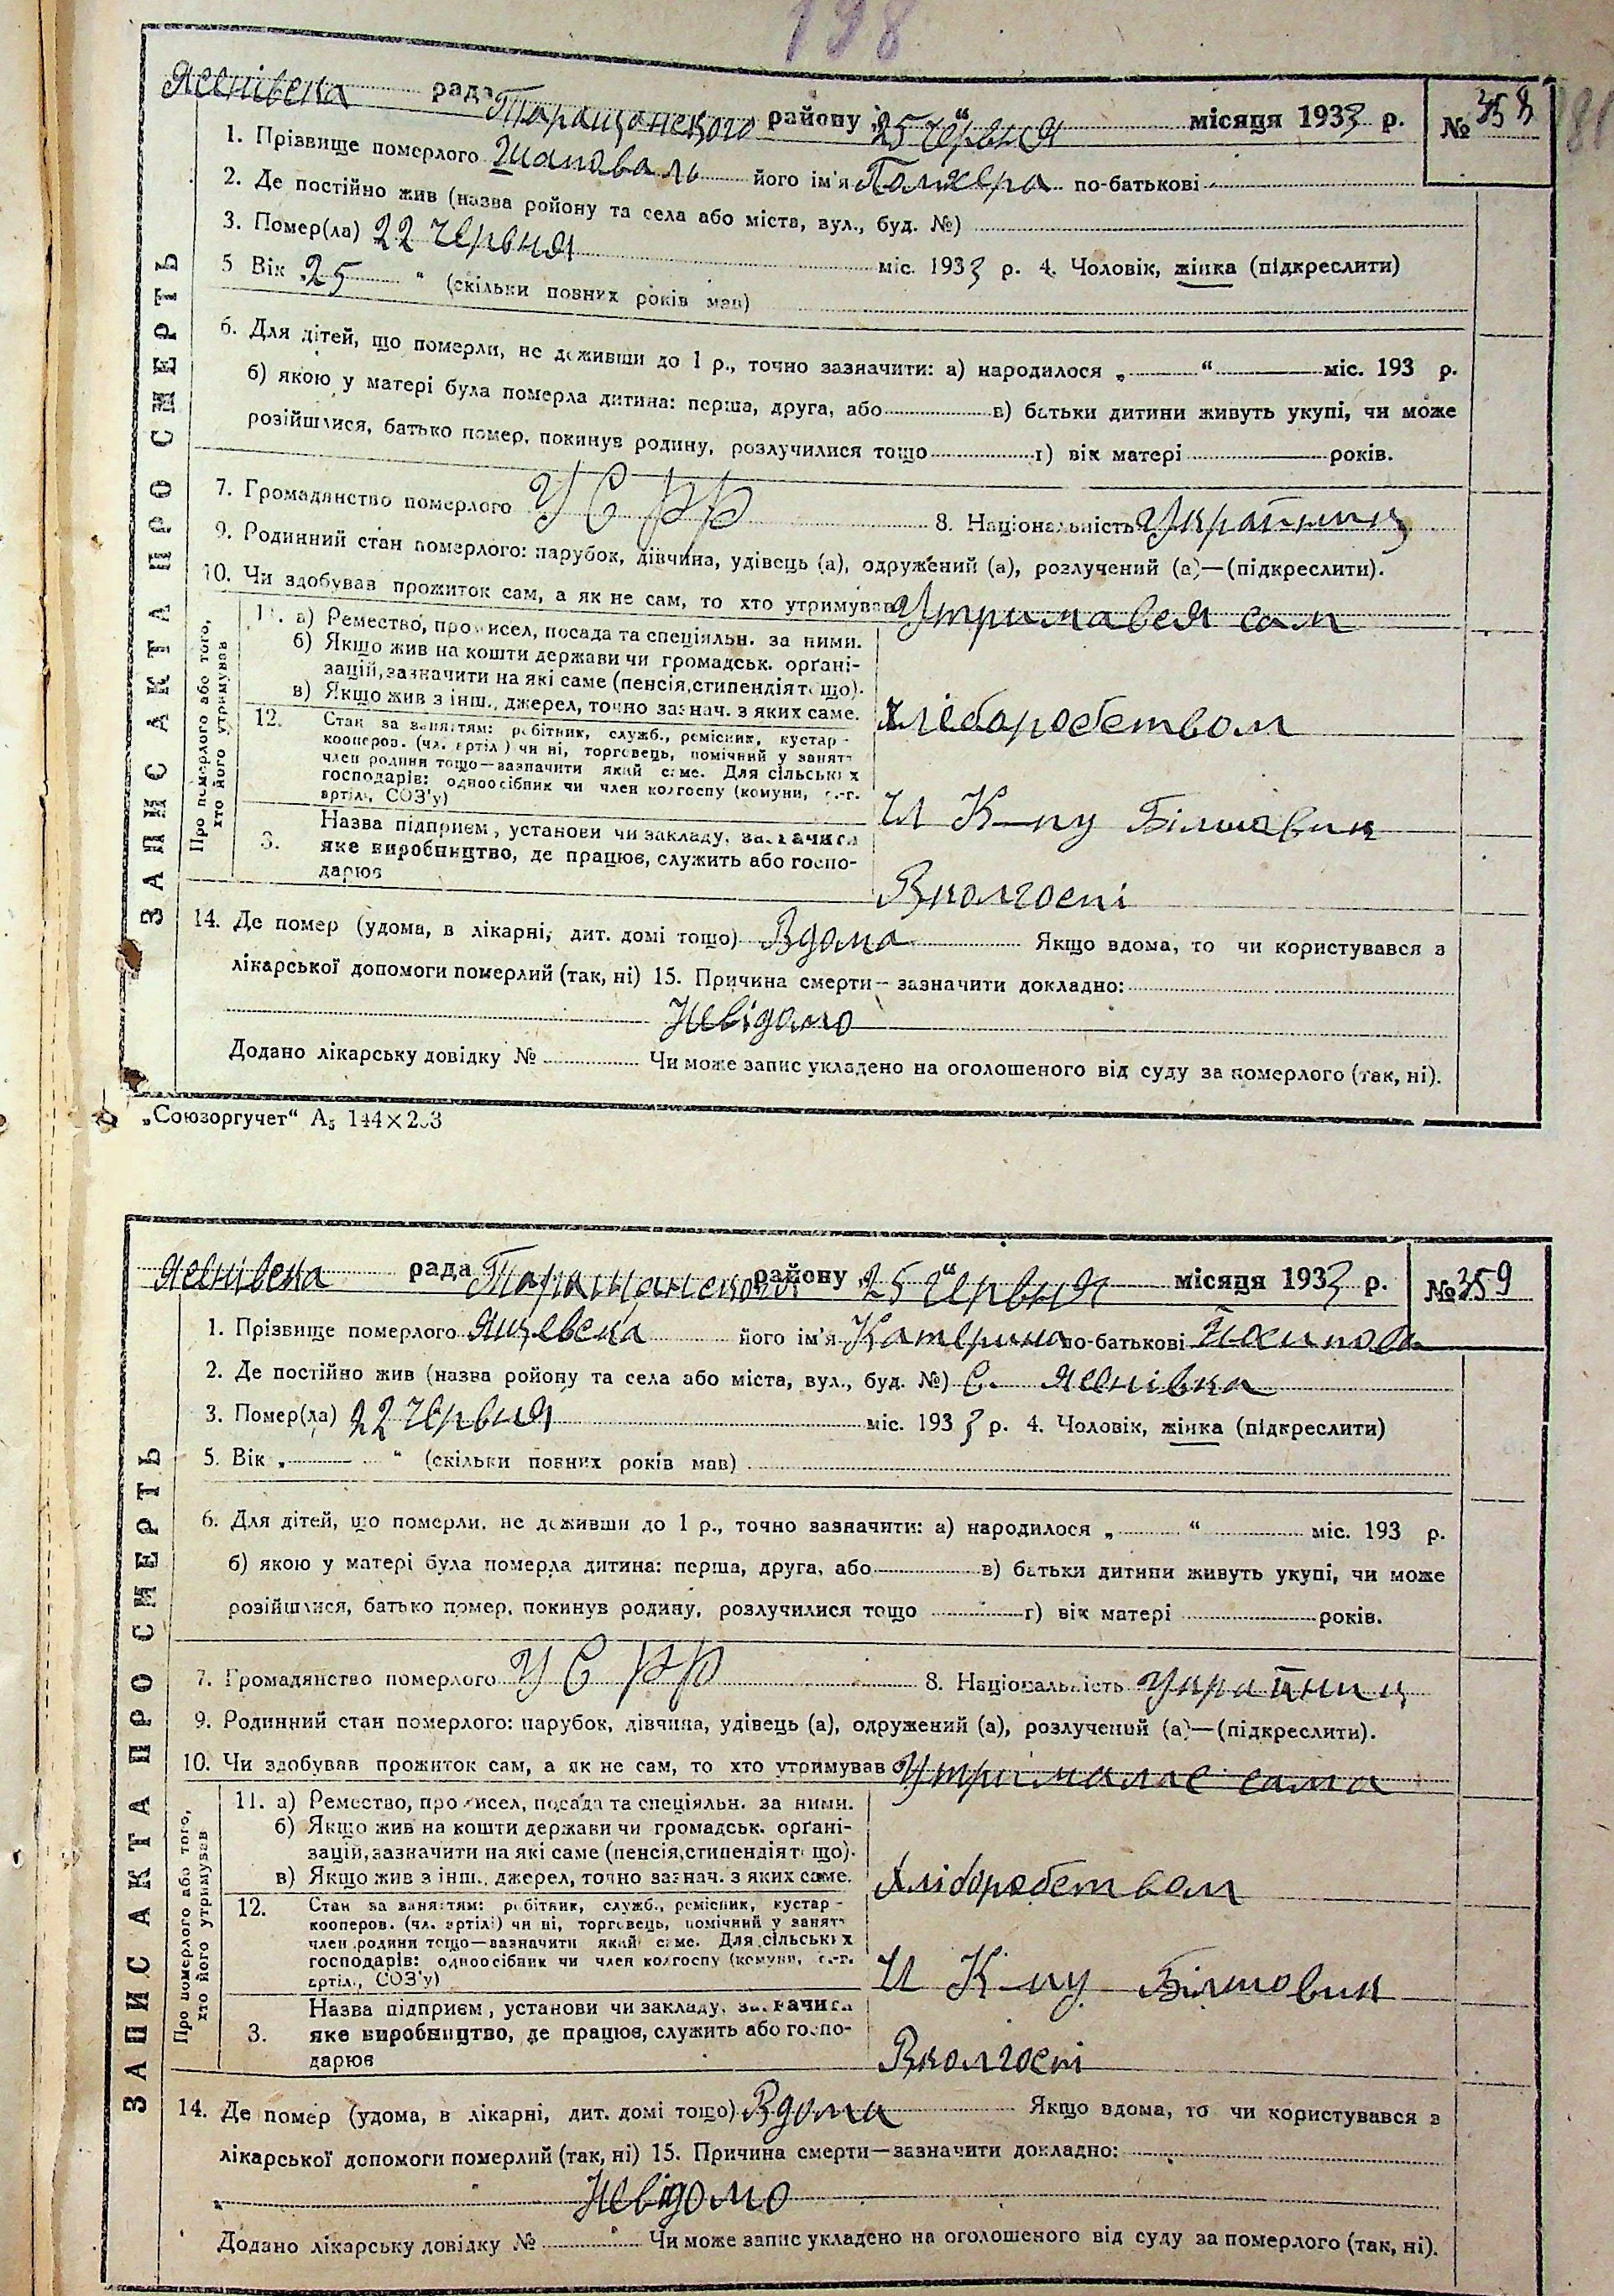 198
Яснівська рада Таращанского району „25“ червня місяця 1933 р. № 358
1. Прізвище померлого Шаповаль його ім'я по-батькові
2. Де постійно жив (назва ройону та села або міста, вул., буд. №)
3. Помер(ла) 22 червня міс. 1933 р. 4. Чоловік, жінка (підкреслити)
5 Вік „25 “ (скільки повних років мав)
6. Для дітей, що померли, не доживши до 1 р., точно зазначити: а) народилося „ “ міс. 193 р.
б) якою у матері була померла дитина: перша, друга, або в) батьки дитини живуть укупі, чи може
розійшлися, батько помер, покинув родину, розлучилися тощо г) вік матері років.
7. Громадянство померлого УСРР 8. Національність Українец
9. Родинний стан померлого: парубок, дівчина, удівець (а), одружений (а), розлучений (а)—(підкреслити).
10. Чи здобував прожиток сам, а як не сам, то хто утримував Утримався сам
ЗАПИС АКТА ПРО СМЕРТЬ
Про померлого або того, хто його утримував
11. а) Ремество, промисел, посада та спеціяльн. за ними.
б) Якщо жив на кошти держави чи громадськ. орґані-
зацій, зазначити на які саме (пенсія, стипендія тощо).
в) Якщо жив з інш., джерел, точно зазнач. з яких саме. Хлеборобством
12. Стан за заняттям: робітник, служб., ремісник, кустар-
кооперов. (чл. артілі) чи ні, торговець, помічний у занятт
член родини тощо—зазначити який саме. Для сільських
господарів: одноосібник чи член колгоспу (комуни, с.-г.
артіль, СОЗ'у) Ч К-пу Білшовик
3. Назва підприєм, установи чи закладу, зазначити
яке виробництво, де працює, служить або госпо-
дарює Вколгоспі
14. Де помер (удома, в лікарні, дит. домі тощо) Вдома Якщо вдома, то чи користувався з
лікарської допомоги померлий (так, ні) 15. Причина смерти — зазначити докладно:
Невідомо
Додано лікарську довідку № Чи може запис укладено на оголошеного від суду за померлого (так, ні).
„Союзоргучет“ А5 144×203
Яснівська рада Таращанского району „25“ червня місяця 1933 р. № 359
1. Прізвище померлого Яцевська його ім'я Катерина по-батькові Йосипова
2. Де постійно жив (назва ройону та села або міста, вул., буд. №) С. Яснівка
3. Помер(ла) 22 червня міс. 1933 р. 4. Чоловік, жінка (підкреслити)
5. Вік „ “ (скільки повних років мав)
6. Для дітей, що померли, не доживши до 1 р., точно зазначити: а) народилося „ “ міс. 193 р.
б) якою у матері була померла дитина: перша, друга, або в) батьки дитини живуть укупі, чи може
розійшлися, батько помер, покинув родину, розлучилися тощо г) вік матері років.
7. Громадянство померлого УСРР 8. Національність Українец
9. Родинний стан померлого: парубок, дівчина, удівець (а), одружений (а), розлучений (а)—(підкреслити).
10. Чи здобував прожиток сам, а як не сам, то хто утримував Утрималас сама
ЗАПИС АКТА ПРО СМЕРТЬ
Про померлого або того, хто його утримував
11. а) Ремество, промисел, посада та спеціяльн. за ними.
б) Якщо жив на кошти держави чи громадськ. орґані-
зацій, зазначити на які саме (пенсія, стипендія тощо).
в) Якщо жив з інш., джерел, точно зазнач. з яких саме. Хліборобством
12. Стан за заняттям: робітник, служб., ремісник, кустар-
кооперов. (чл. артілі) чи ні, торговець, помічний у занятт
член родини тощо—зазначити який саме. Для сільських
господарів: одноосібник чи член колгоспу (комуни, с.-г.
артіль, СОЗ'у) Ч К-пу Білшовик
3. Назва підприєм, установи чи закладу, зазначити
яке виробництво, де працює, служить або госпо-
дарює Вколгоспі
14. Де помер (удома, в лікарні, дит. домі тощо) Вдома Якщо вдома, то чи користувався з
лікарської допомоги померлий (так, ні) 15. Причина смерти—зазначити докладно:
Невідомо
Додано лікарську довідку № Чи може запис укладено на оголошеного від суду за померлого (так, ні).